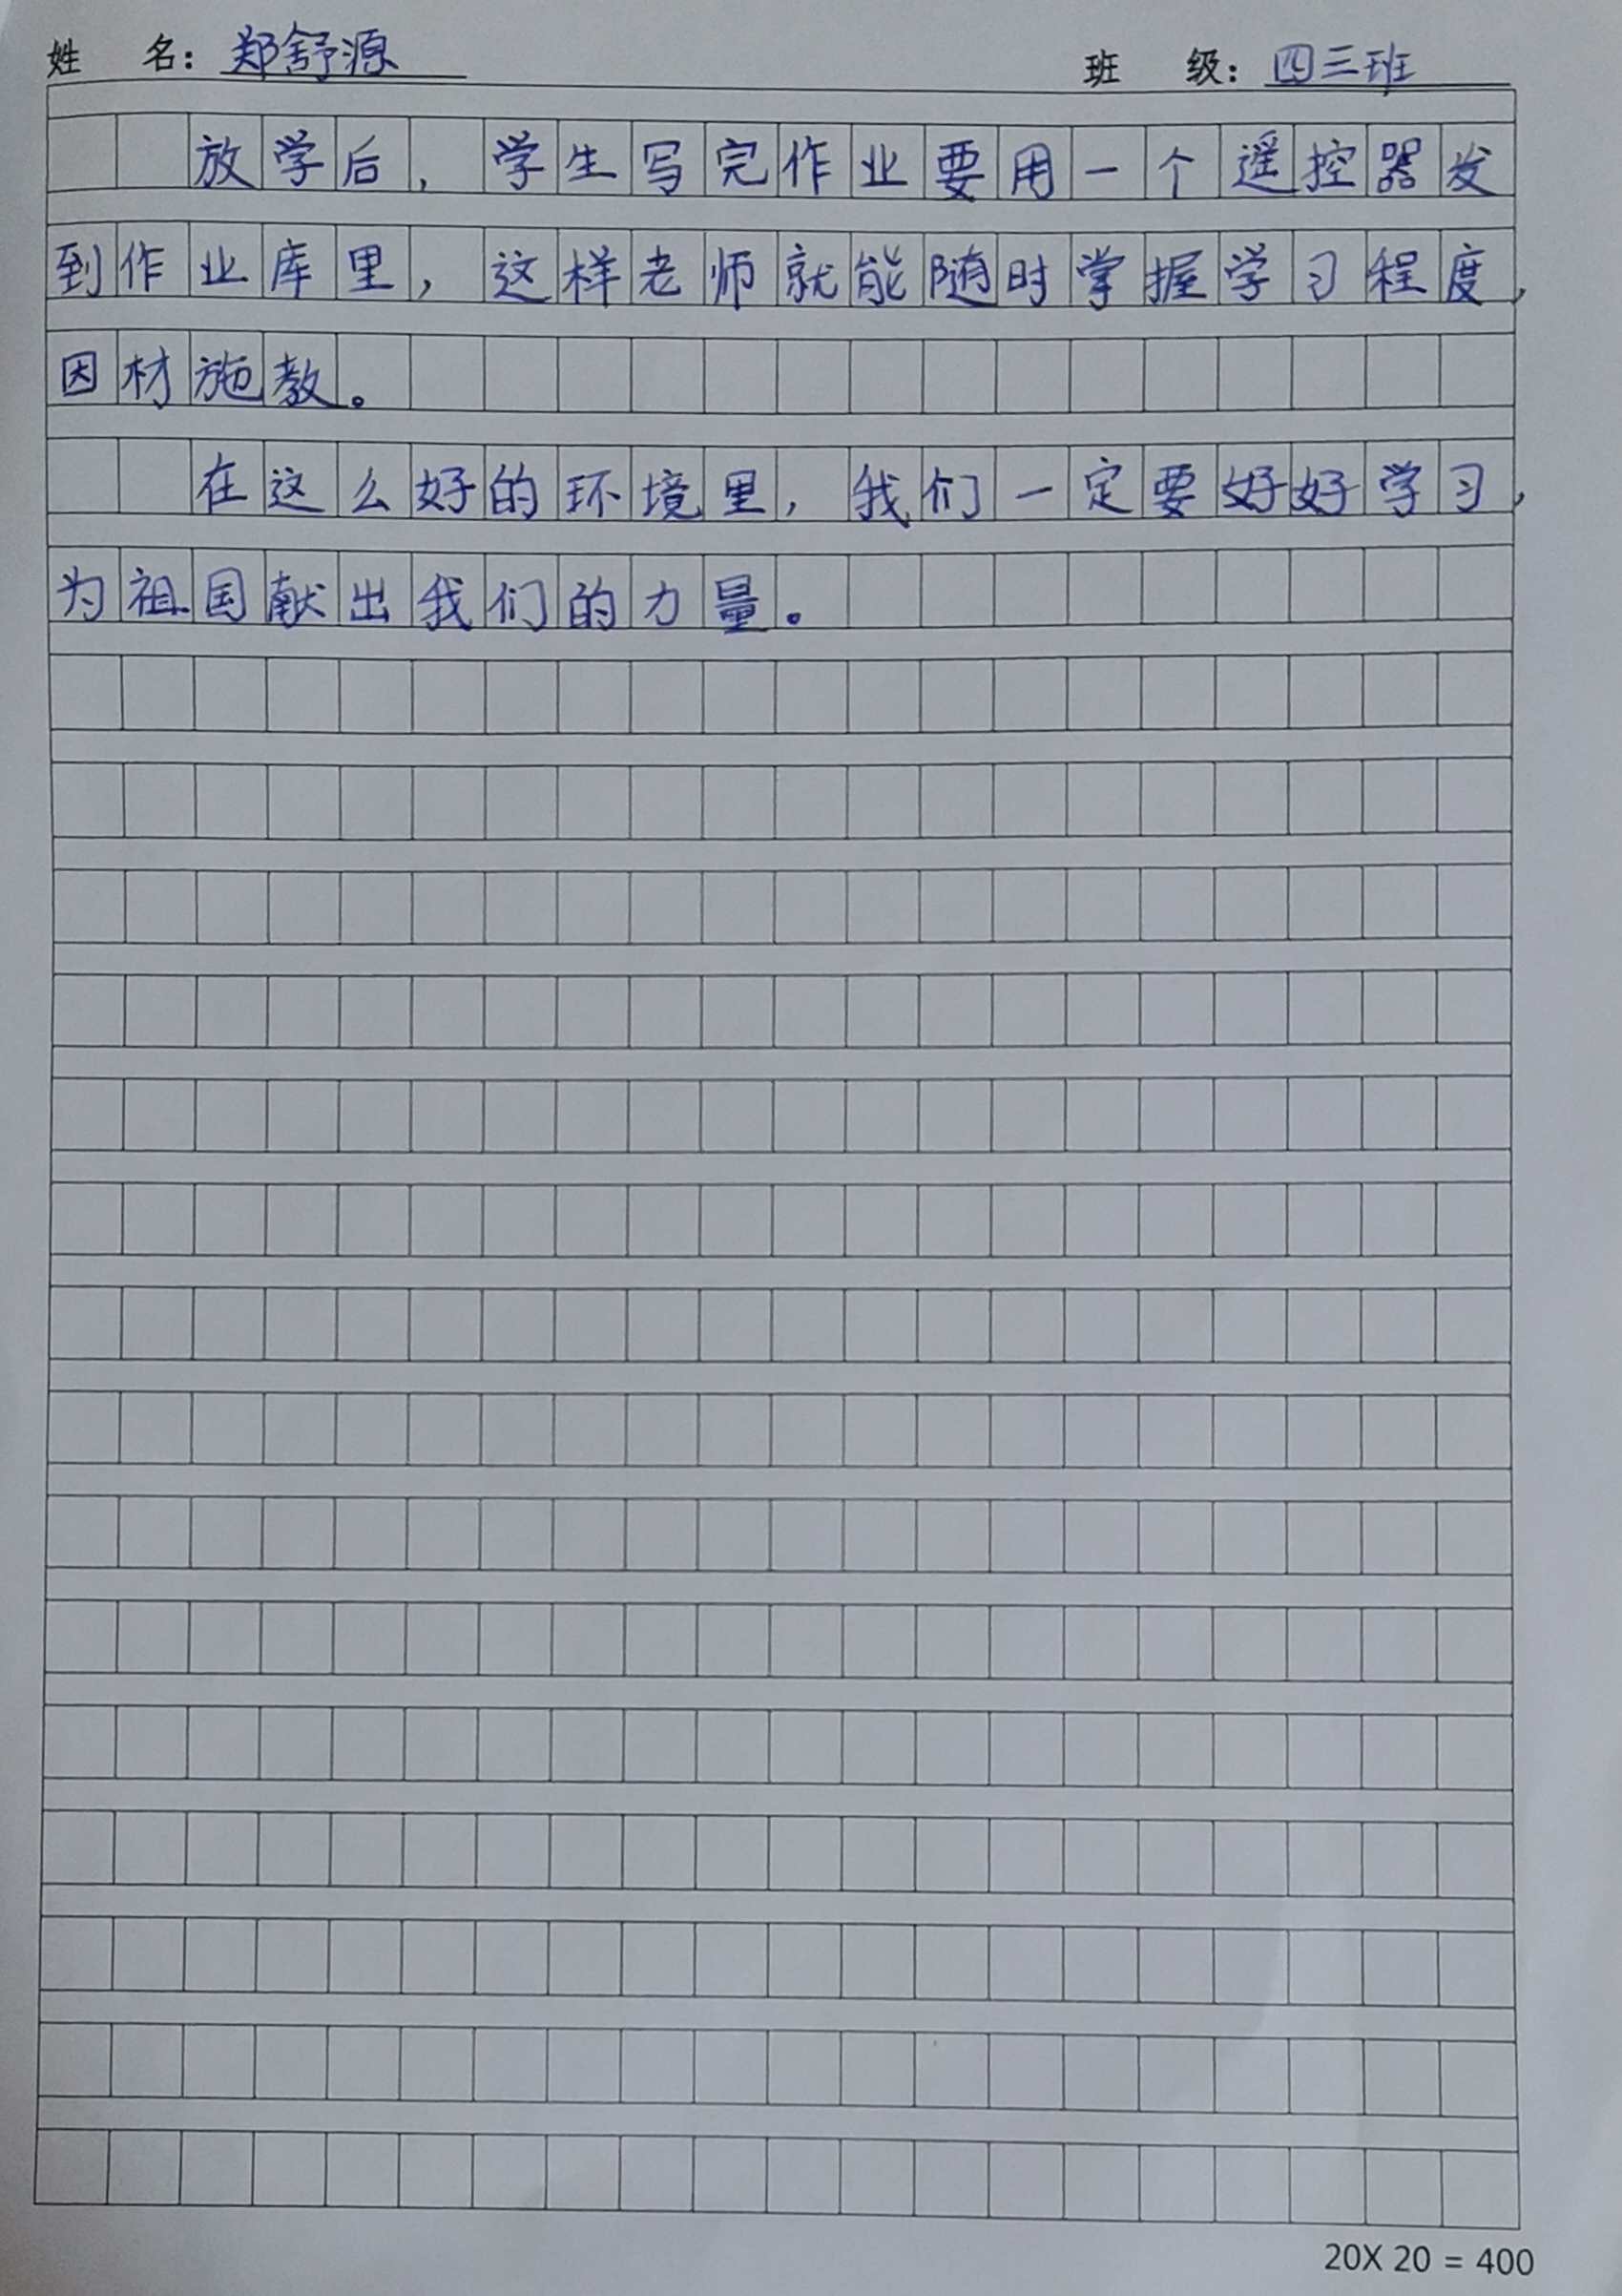 姓 名：郑舒源 班 级：四三班
放学后，学生写完作业要用一个遥控器发
到作业库里，这样老师就能随时掌握学习程度，
因材施教。
在这么好的环境里，我们一定要好好学习，
为祖国献出我们的力量。
20X 20 = 400